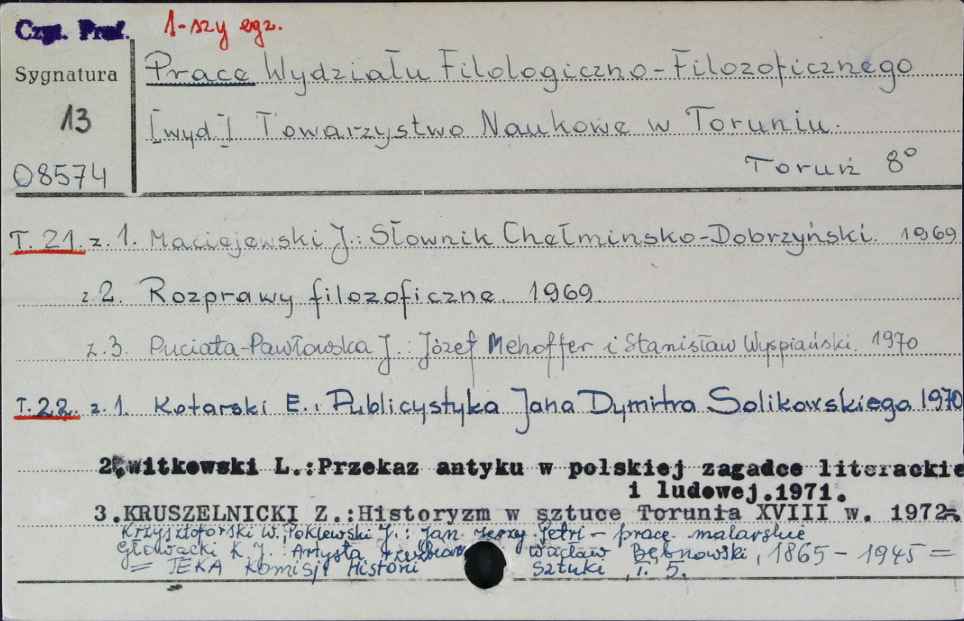 Czyt. Prof. 1-szy egz.
Sygnatura
13
08574
Prace Wydziału Filologiczno-Filozoficznego
[wyd.] Towarzystwo Naukowe w Toruniu.
Toruń 8°
T. 21. z. 1. Maciejewski J.: Słownik Chełminsko-Dobrzyński. 1969
z. 2. Rozprawy filozoficzne. 1969
z. 3. Puciata-Pawłowska J.: Józef Mehoffer i Stanisław Wyspiański. 1970
T. 22. z. 1. Kotarski E.: Publicystyka Jana Dymitra Solikowskiego 1970
2. witkowski L.:Przekaz antyku w polskiej zagadce literackie
i ludowej.1971.
3.KRUSZELNICKI Z.:Historyzm w sztuce Torunia XVIII w. 1972.
Krzysztoforski W. Poklewski J.: Jan Jerzy Petri – prace malarskie
Głowacki K. J. Artysta Wacław Bębnowski, 1865 – 1945 =
= TEKA Komisji Historii Sztuki, T. 5.